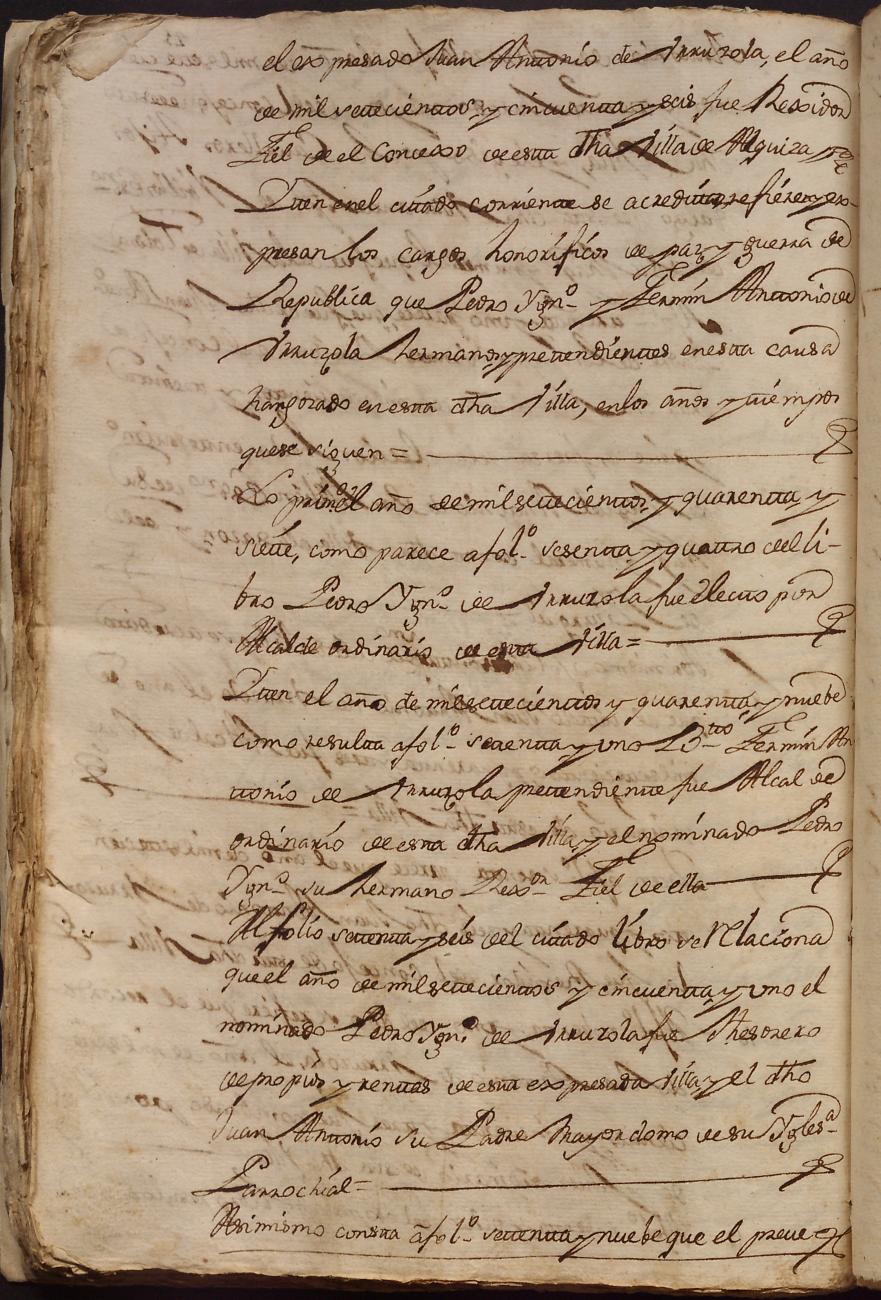 el expresado Juan Antonio de Yrruzola, el año
de mil settecientos y cincuentta y seis fue Rexidor
Fiel de el Concexo de estta dha Villa de Alquiza
Ytten en el cittado corriente se acreditta, refieren y ex-
presan los cargos honorificos de paz y guerra de
Republica que Pedro Ygnº y Fermin Antonio de
Yrruzola hermanos y prettendienttes en estta causa
han gozado en estta dha Villa, en los años y tiempos
que se siguen =
Lo primº el año de mil settecienttos y quarentta y
siette, como parece a folº sesentta y quattro del li-
bro Pedro Ygnº de Yrruzola fue electto por
Alcalde ordinario de estta Villa =
Ytten el año de mil settecienttos y quarentta y nuebe
como resultta a folº settentta y uno Dtto Fermin An
ttonio de Yrruzola prettendiente fue Alcalde
ordinario de estta dha Villa, y el nominado Pedro
Ygnº su hermano Rexor Fiel de ella
Al folio settentta y seis del cittado libro se relaciona
que el año de mil settecienttos y cincuentta y uno el
nominado Pedro Ygnº de Yrruzola fue Thesorero
de propios y renttas de estta expresada Villa, y el dho
Juan Antonio su Padre Mayordomo de su Yglesª
Parrochial =
Asimismo constta a folº settentta y nuebe que el preve